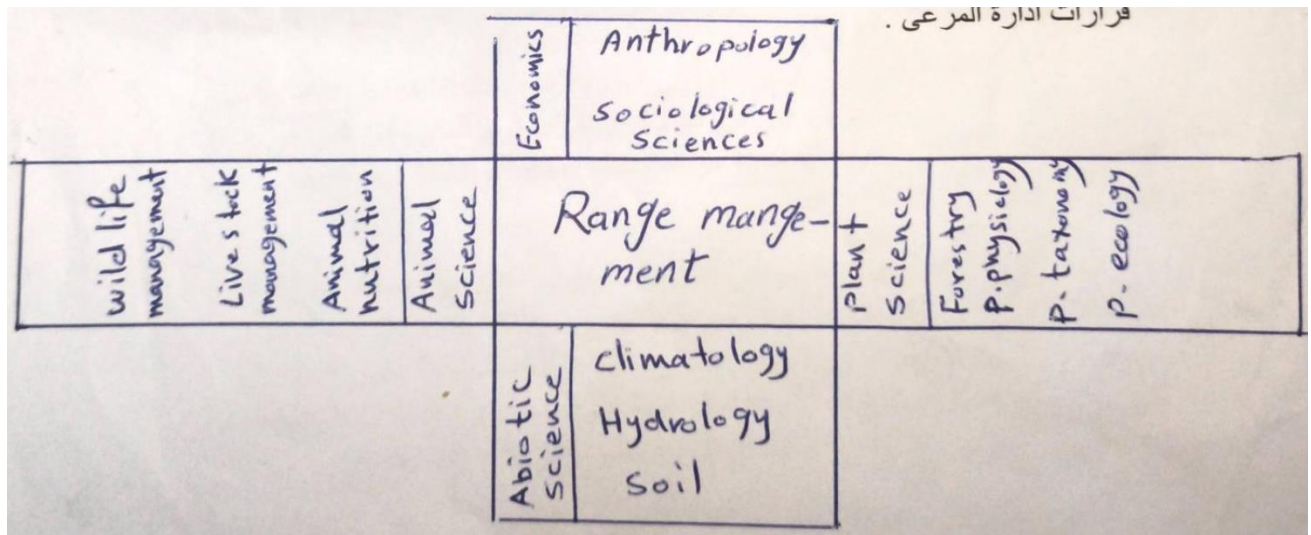 قرارات ادارة المرعى .
Economics
Anthropology
Sociological
Sciences
wild life
management
Live stock
management
Animal
nutrition
Animal
Science
Range mange-
ment
plant
science
Forestry
P.physiology
P. taxonomy
P. ecology
Abiotic
science
climatology
Hydrology
Soil